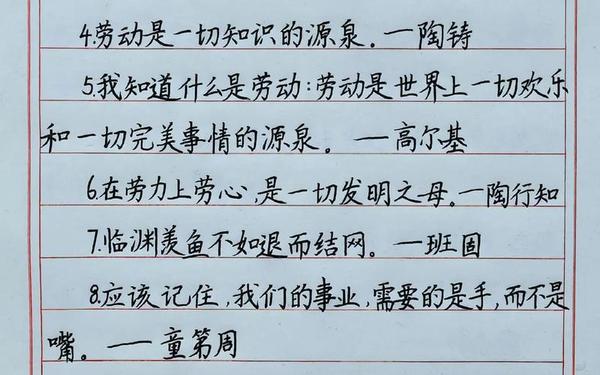 4.劳动是一切知识的源泉。一陶铸
5.我知道什么是劳动:劳动是世界上一切欢乐
和一切完美事情的源泉。一高尔基
6.在劳力上劳心,是一切发明之母。一陶行知
7.临渊羡鱼不如退而结网。一班固
8.应该记住,我们的事业,需要的是手,而不是
嘴。一童第周